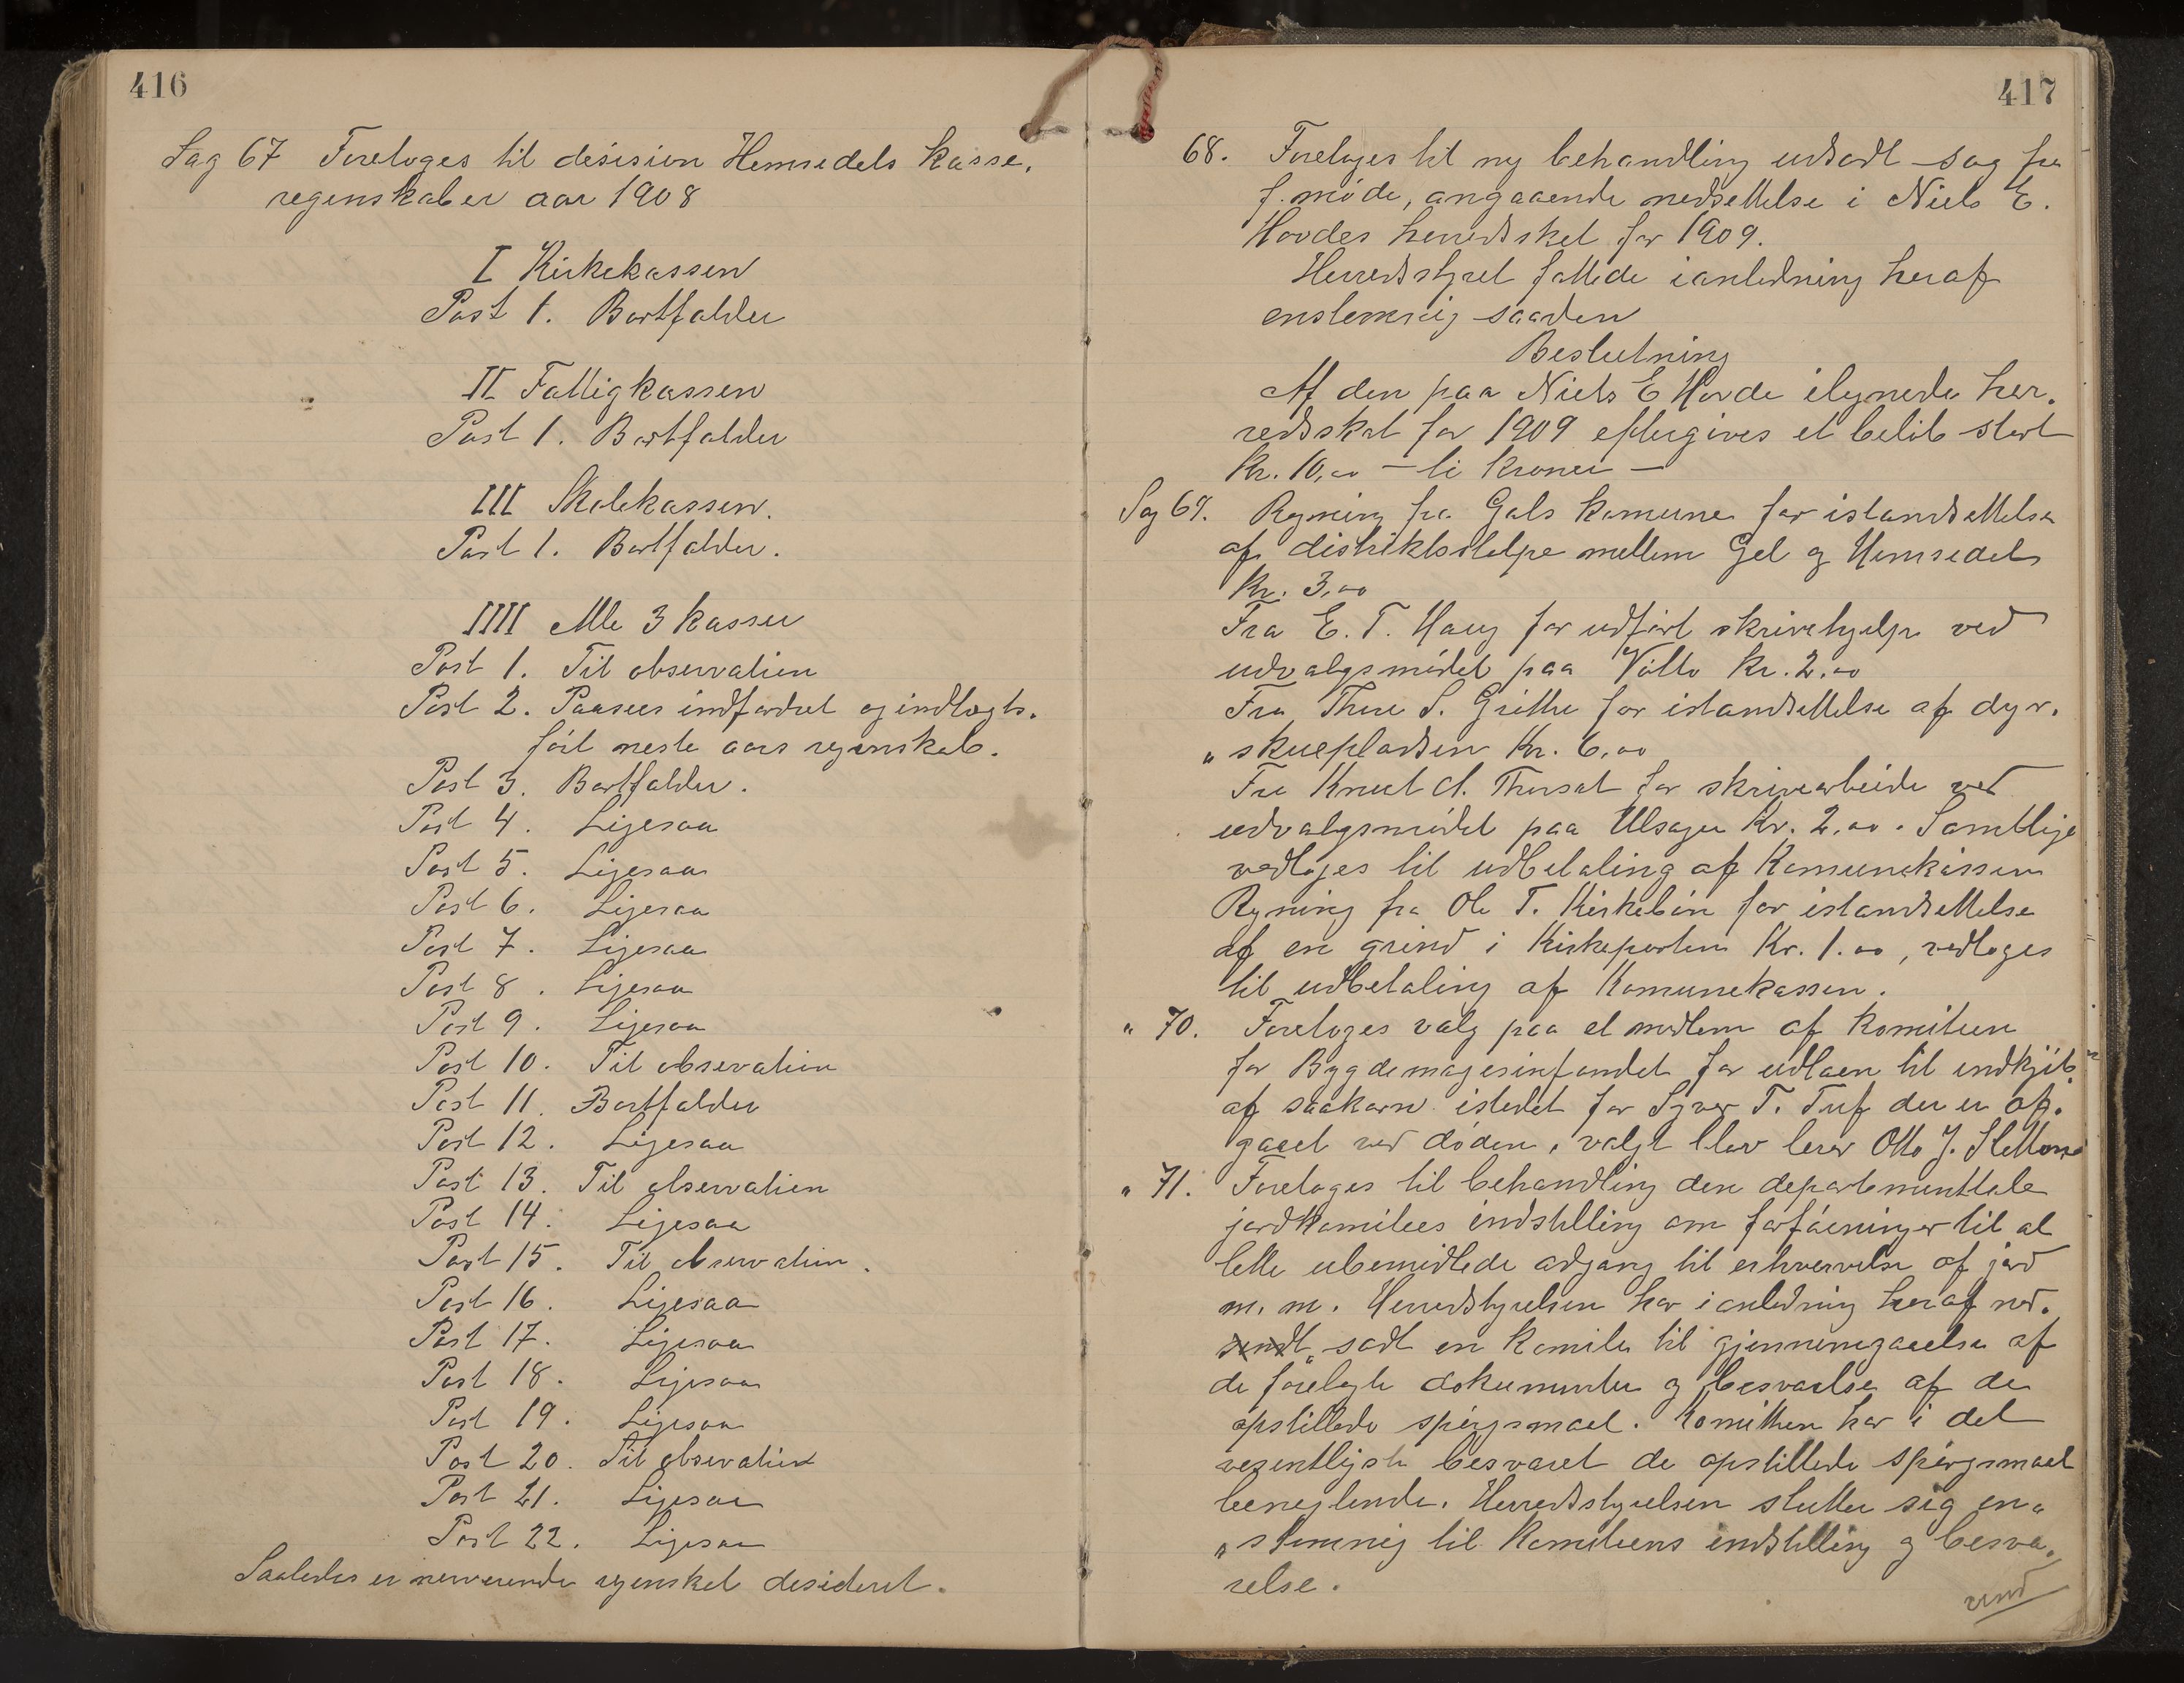 416
Sag 67 Foretoges til desision Hemsedels kasse.
regenskaber aar 1908
I Kirkekassen
Post 1. Bortfalder
II Fattigkassen
Post 1. Bortfalder
III Skolekassen.
Post 1. Bortfalder.
IIII Alle 3 kasser
Post 1. Til observation
Post 2. Paasees indfordret og indtægts.
ført neste aars regenskab.
Post 3. Bortfalder.
Post 4. Ligesaa
Post 5. Ligesaa
Post 6. Ligesaa
Post 7. Ligesaa
Post 8. Ligesaa
Post 9. Ligesaa
Post 10. Til observation
Post 11. Bortfalder
Post 12. Ligesaa
Post 13. Til observation
Post 14. Ligesaa
Post 15. Til observation.
Post 16. Ligesaa
Post 17. Ligesaa
Post 18. Ligesaa
Post 19. Ligesaa
Post 20. Til observation
Post 21. Ligesaa
Post 22. Ligesaa
Saaledes er nerverende regenskab desideret.
417
68. Foretages til ny behandling udsadt sag fra
f. møde, angaaende nedsettelse i Niels E.
Hovdes herredsskat for 1909.
Herredsstyret fattede i anledning heraf
enstemmig saaden
Beslutning
Af den paa Niels E Hovde ilignede her.
redsskat for 1909 eftergives et beløb stort
Kr. 10,00 – ti kroner –
Sag 69. Regning fra Gols komune for istandsettelse
af distriktsstolpe mellem Gol og Hemsedal
Kr. 3,00
Fra E. T. Haug for udført skrivehjelp ved
udvalgsmødet paa Kr. 2.00
Fra Thore S. Grøthe for istandsettelse af dyr.
" skuepladsen Kr. 6,00
Fra Knut A. for skrivearbeide ved
udvalgsmødet paa Ulsager Kr. 2,00. Samtlige
vedtoges til udbetaling af Komunekassen
Regning fra Ole T. Kirkebøn for istandsettelse
af en grind i Kirkeporten Kr. 1.00, vedtoges
til udbetaling af Komunekassen.
" 70. Foretoges valg paa et medlem af komiteen
for Bygdemagasinfondet for udlaan til indkjøb
af saakorn istedet for Syver T. Tuf der er af.
gaaet ved døden, valgt blev lerer Otto J.
" 71. Foretoges til behandling den departementtale
jordkomitees indstilling om forføininger til at
lette ubemidlede adgang til erhvervelse af jord
m. m. Herredstyrelsen har i anledning heraf ned.
sendt " sadt en komite til gjennemgaaelse af
de forelagte dokumenter og besvarelse af de
opstillede spørgsmaal. Komitteen har i det
vesentligste besvaret de opstillede spørgsmaal
benegtende. Herredstyrelsen slutter sig en"
" stemmig til Komiteens indstilling og besva.
relse.